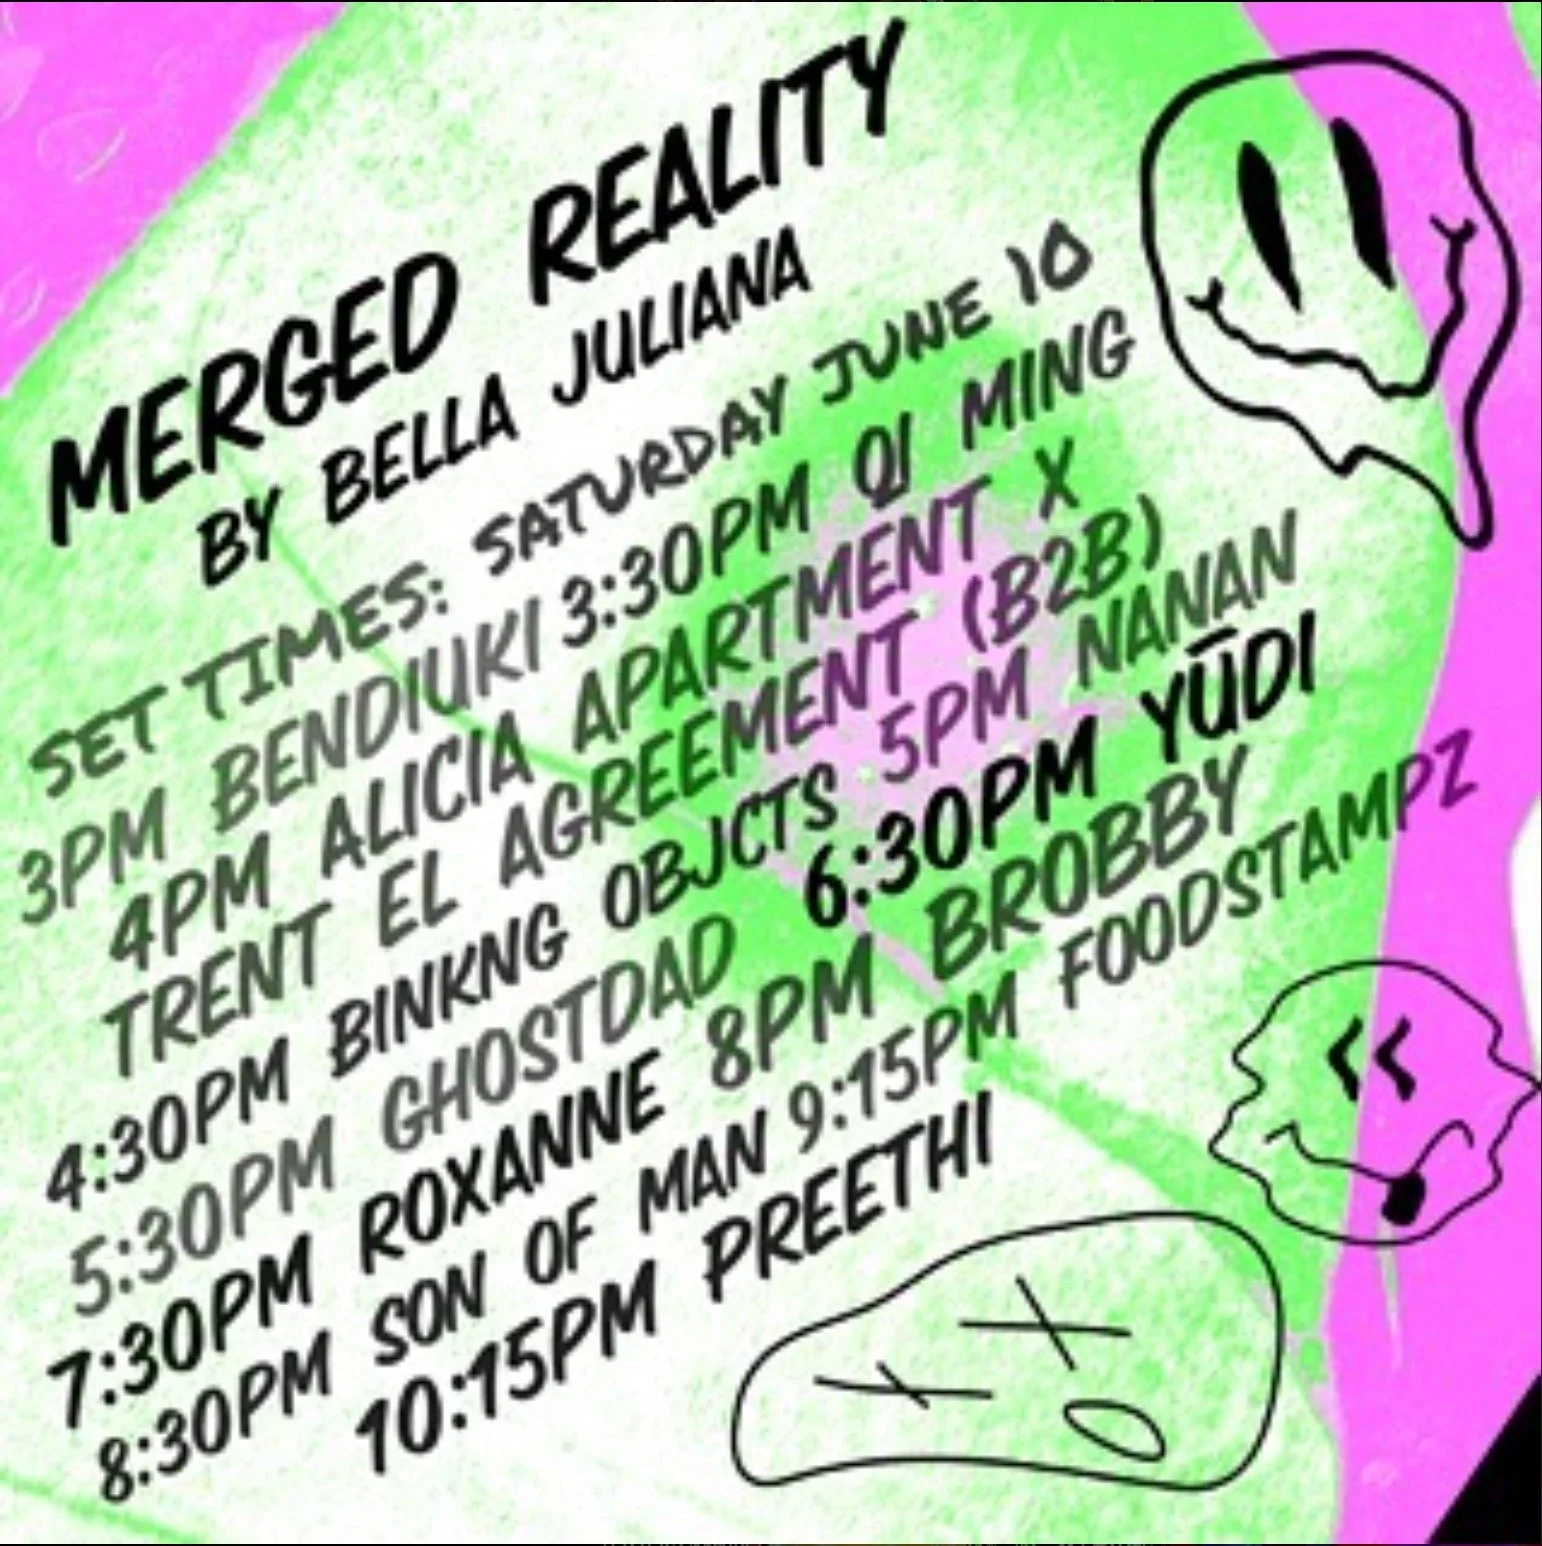 MERGED REALITY
BY BELLA JULIANA
SET TIMES: SATURDAY JUNE 10
3PM BENDIUKI 3:30PM QI MING
4PM ALICIA APARTMENT X
TRENT EL AGREEMENT (B2B)
4:30PM BINKNG OBJCTS 5PM NANAN
5:30PM GHOSTDAD 6:30PM YŪDI
7:30PM ROXANNE 8PM BROBBY
8:30PM SON OF MAN 9:15PM FOODSTAMPZ
10:15PM PREETHI